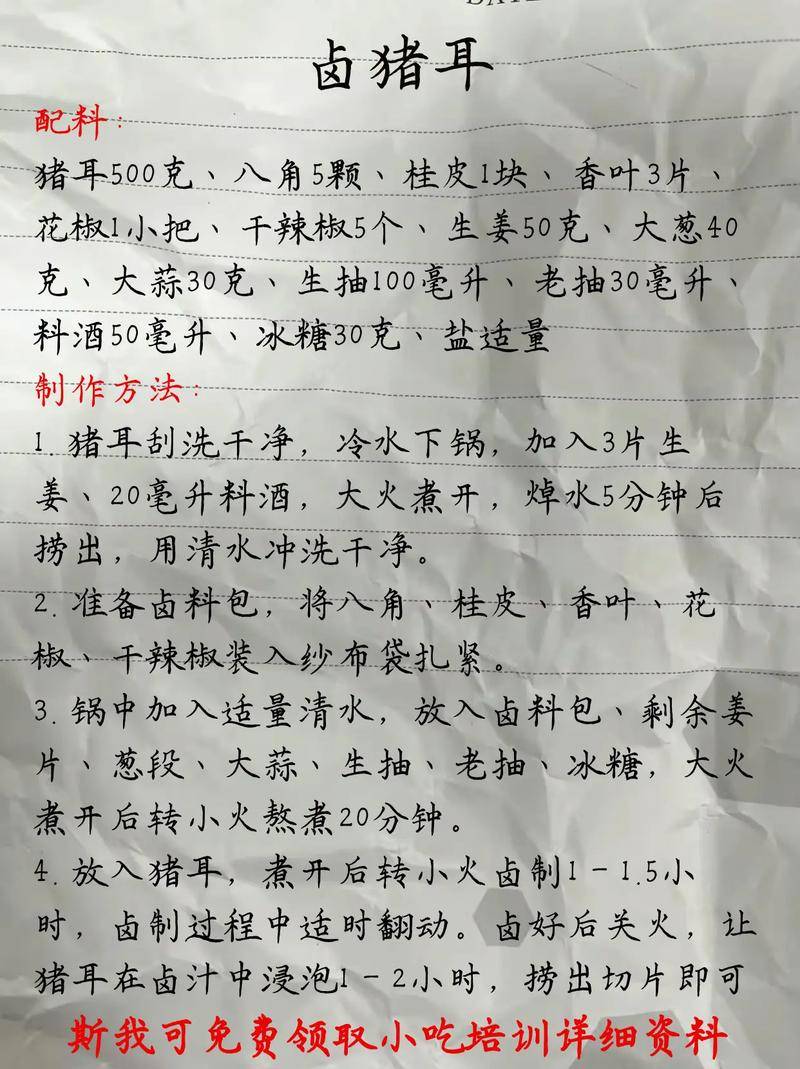 卤猪耳
配料：
猪耳500克、八角5颗、桂皮1块、香叶3片、
花椒1小把、干辣椒5个、生姜50克、大葱40
克、大蒜30克、生抽100毫升、老抽30毫升、
料酒50毫升、冰糖30克、盐适量
制作方法：
1. 猪耳刮洗干净，冷水下锅，加入3片生
姜、20毫升料酒，大火煮开，焯水5分钟后
捞出，用清水冲洗干净。
2. 准备卤料包，将八角、桂皮、香叶、花
椒、干辣椒装入纱布袋扎紧。
3. 锅中加入适量清水，放入卤料包、剩余姜
片、葱段、大蒜、生抽、老抽、冰糖，大火
煮开后转小火熬煮20分钟。
4. 放入猪耳，煮开后转小火卤制1-1.5小
时，卤制过程中适时翻动。卤好后关火，让
猪耳在卤汁中浸泡1-2小时，捞出切片即可
斯我可免费领取小吃培训详细资料